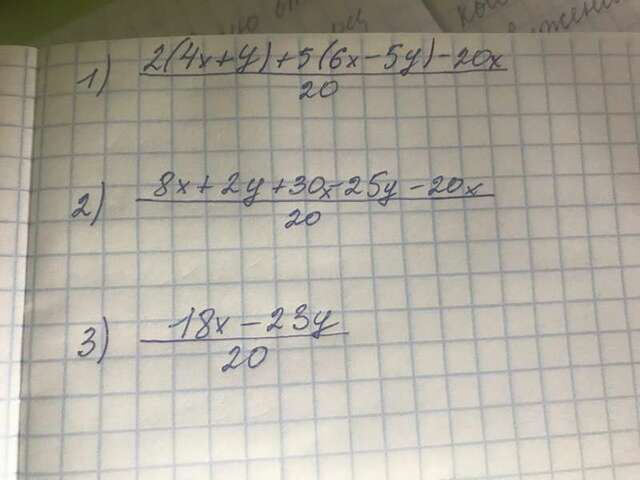 1) 2(4x+y)+5(6x-5y)-20x
20
2) 8x+2y+30x-25y-20x
20
3) 18x-23y
20